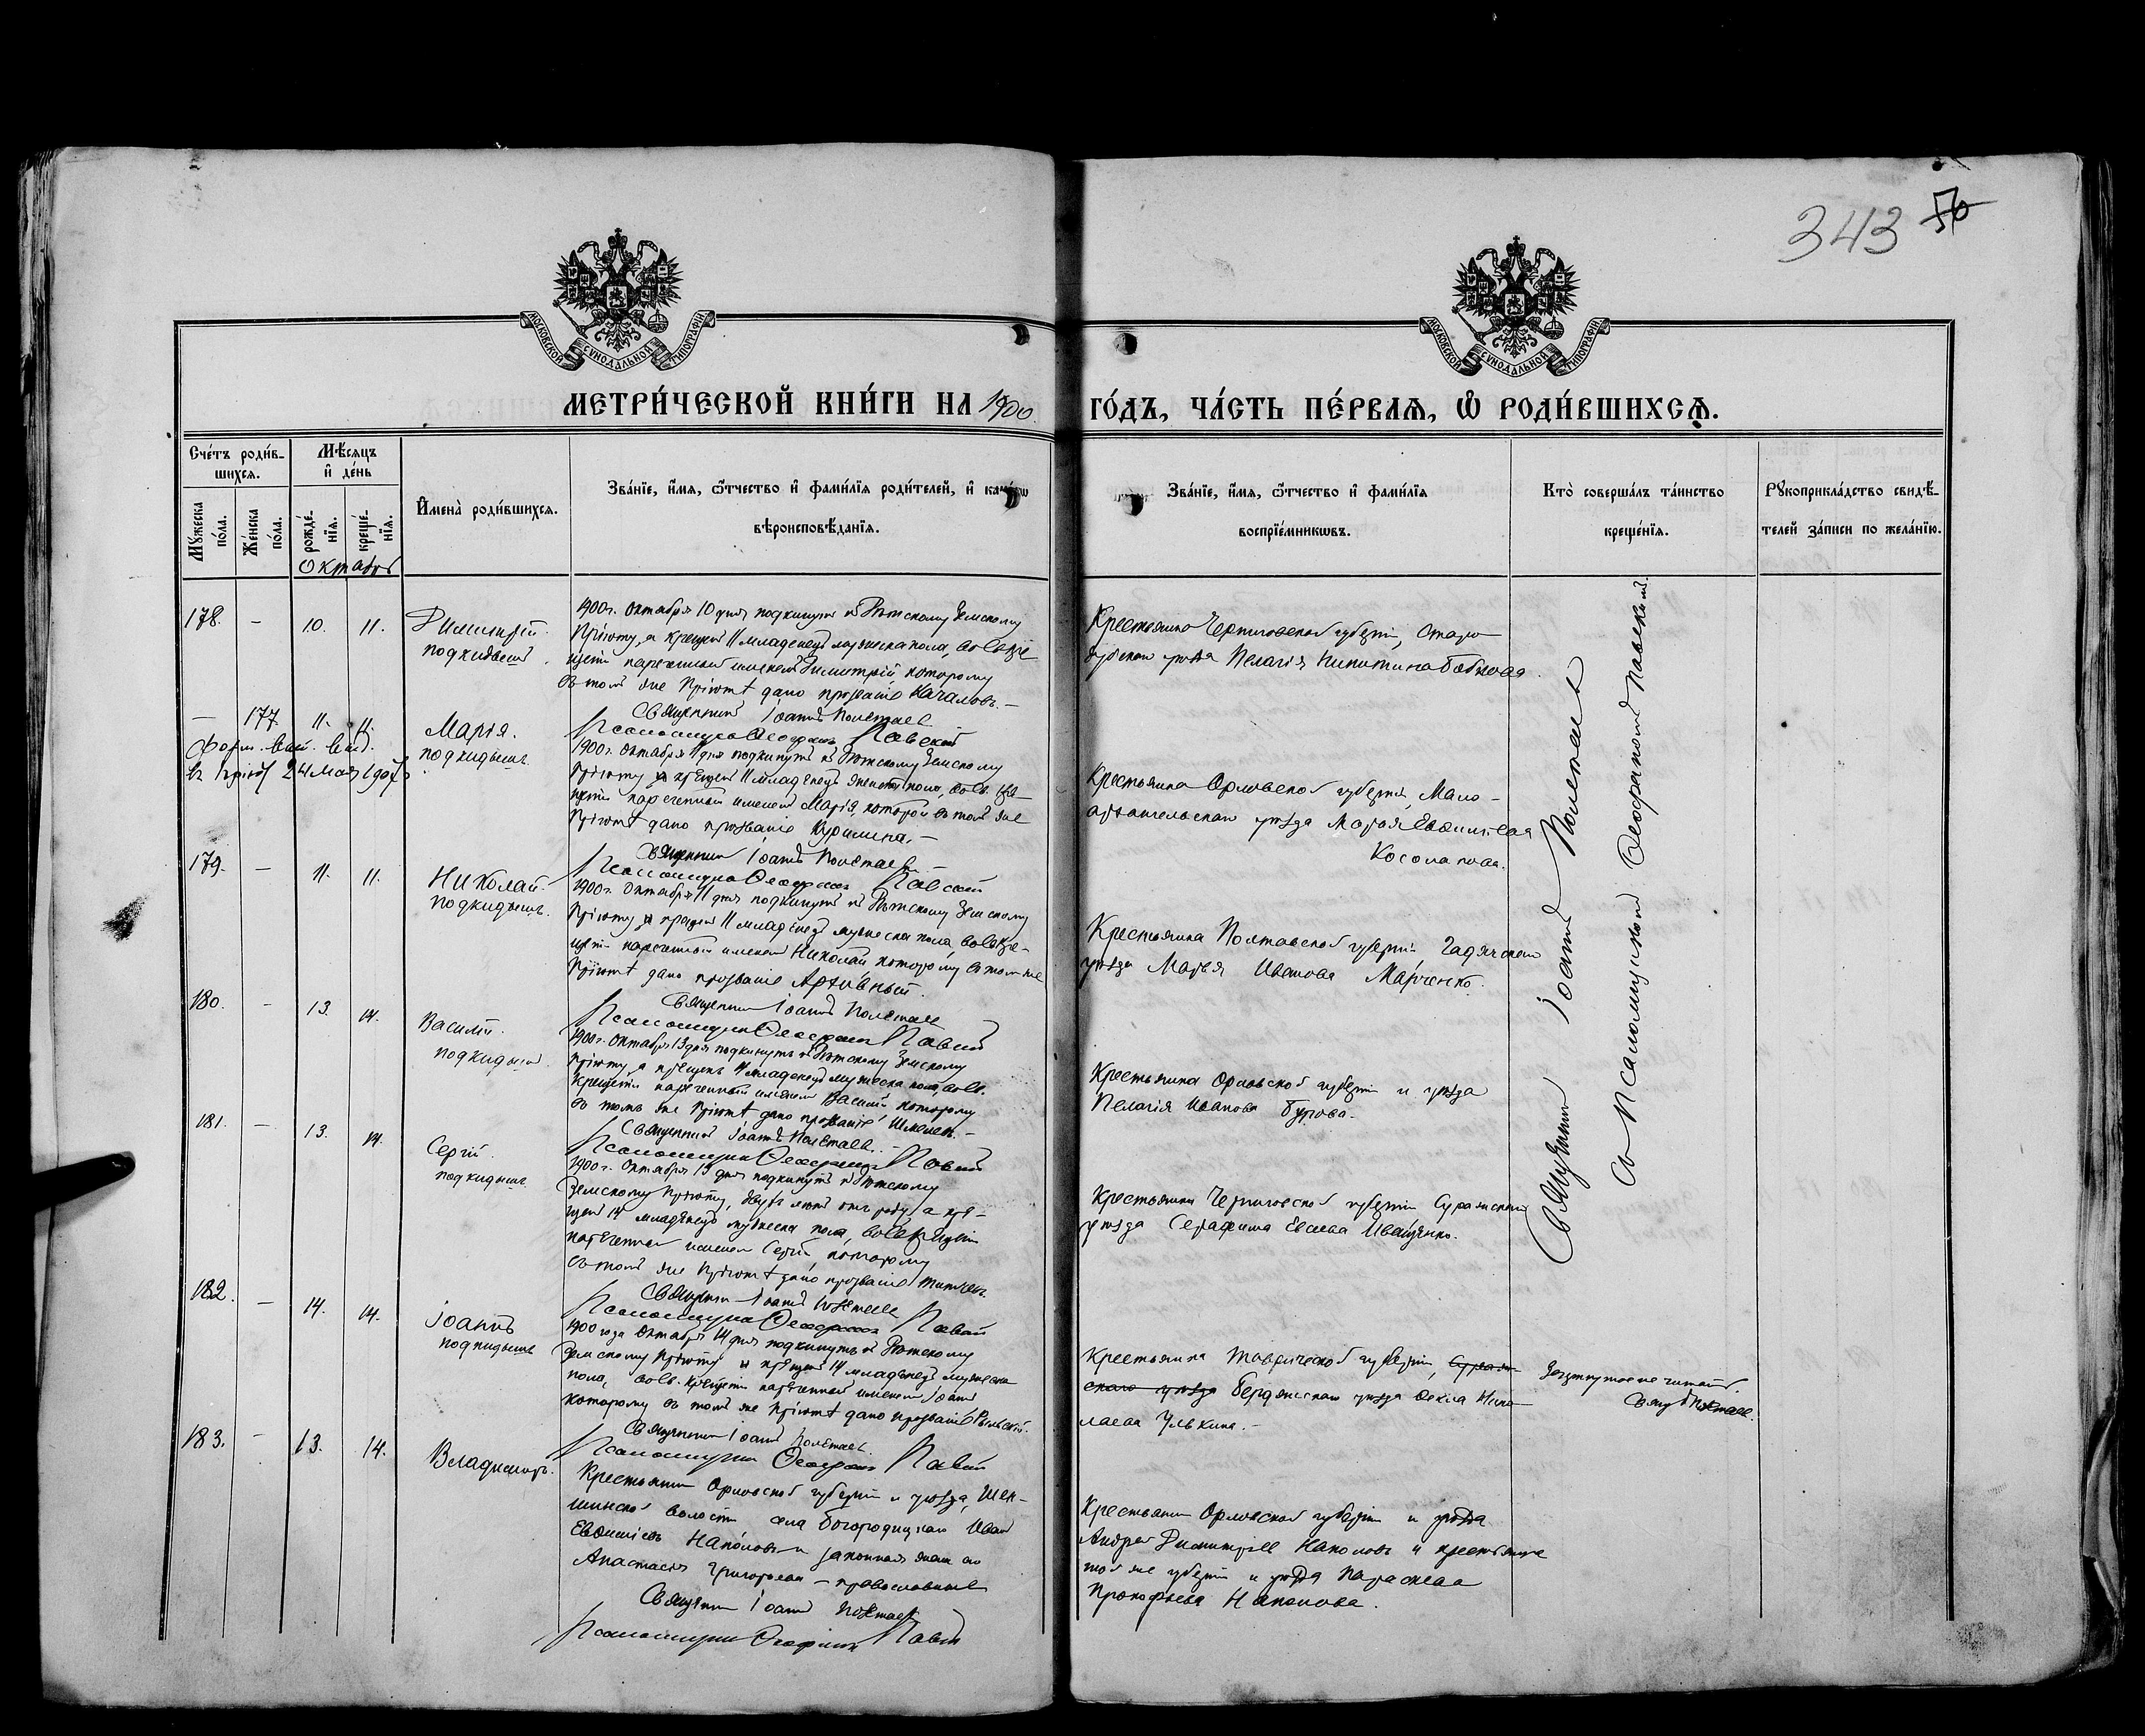 343 50
МОСКОВСКОЙ СУНОДАЛЬНОЙ ТИПОГРАФІИ
МОСКОВСКОЙ СУНОДАЛЬНОЙ ТИПОГРАФІИ
МЕТРИ́ЧЕСКОЙ КНИ́ГИ НА 1900
ГО́ДЪ, ЧА́СТЬ ПЕ́РВАѦ, Ѡ҆ РОДИ́ВШИХСѦ.
Сче́тъ роди́в-
шихсѧ.
Мꙋ́жеска по́ла.
Же́нска по́ла.
Мѣ́сѧцъ
и҆ де́нь
рожде́-
нїѧ.
креще́-
нїѧ.
Октябрь
И҆мена̀ роди́вшихсѧ.
Зва́нїе, и҆́мѧ, ѻ҆́тчество и҆ фами́лїѧ роди́телей, и҆ како́гѡ
вѣроисповѣ́данїѧ.
Зва́нїе, и҆́мѧ, ѻ҆́тчество и҆ фами́лїѧ
воспрїе́мникѡвъ.
Кто̀ соверша́лъ та́инство
креще́нїѧ.
Рꙋкоприкла́дство свидѣ́-
телей за́писи по жела́нїю.
178. - 10. 11.
Димитрій
подкидышъ
1900 г. Октября 10 дня подкинутъ къ Вятскому Земскому
Пріюту, а крещенъ 11 младенецъ мужеска пола, во св. кре-
щеніи нареченный именемъ Димитрій которому
въ томъ же Пріютѣ дано прозваніе Качаловъ. -
Священникъ Іоаннъ Полетаевъ
Псаломщикъ Ѳеофанъ Павскій
Крестьянка Черниговской губерніи, Старо-
дубскаго уѣзда Пелагія Никитина Бобкова.
- 177. 11. 11.
24 Мая 1907
Марія.
подкидышъ.
1900 г. Октября 11 дня подкинутъ къ Вятскому Земскому
Пріюту и крещенъ 11 младенецъ женска пола, во св. кре-
щеніи нареченный именемъ Марія, которой въ томъ же
Пріютѣ дано прозваніе
Священникъ Іоаннъ Полетаевъ
Псаломщикъ Ѳеофанъ Павскій
Крестьянка Орловской губерніи, Мало-
архангельскаго уѣзда Марія Евдокимова
Косолапова.
179. - 11. 11.
Николай.
подкидышъ.
1900 г. Октября 11 дня подкинутъ къ Вятскому Земскому
Пріюту и крещенъ 11 младенецъ мужеска пола, во св. кре-
щеніи нареченный именемъ Николай которому въ томъ же
Пріютѣ дано прозваніе Архивный.
Священникъ Іоаннъ Полетаевъ
Псаломщикъ Ѳеофанъ Павскій
Крестьянка Полтавской губерніи Гадячскаго
уѣзда Марья Иванова Марченко.
180. - 13. 14.
Василій.
подкидышъ
1900 г. Октября 13 дня подкинутъ къ Вятскому Земскому
Пріюту, а крещенъ 14 младенецъ мужеска пола, во св.
крещеніи нареченный именемъ Василій которому
въ томъ же Пріютѣ дано прозваніе
Священникъ Іоаннъ Полетаевъ. -
Псаломщикъ Ѳеофанъ Павскій
Крестьянка Орловской губерніи и уѣзда
Пелагія Иванова Бурова.
181. - 13. 14.
Сергій.
подкидышъ.
1900 г. Октября 13 дня подкинутъ къ Вятскому
Земскому Пріюту, двухъ лѣтъ отъ роду, а кре-
щенъ 14 младенецъ мужеска пола, во св. крещеніи
нареченный именемъ Сергій, которому
въ томъ же Пріютѣ дано прозваніе
Священникъ Іоаннъ Полетаевъ
Псаломщикъ Ѳеофанъ Павскій
Крестьянка Черниговской губерніи Суражскаго
уѣзда Серафима Евсеева Иващенко.
182. - 14. 14.
Іоаннъ
подкидышъ
1900 года Октября 14 дня подкинутъ къ Вятскому
Земскому Пріюту и крещенъ 14 младенецъ мужеска
пола, во св. крещеніи нареченный именемъ Іоаннъ
которому въ томъ же Пріютѣ дано прозваніе
Священникъ Іоаннъ Полетаевъ.
Псаломщикъ Ѳеофанъ Павскій
Крестьянка Таврической губерніи, Сураж-
скаго уѣзда Бердянскаго уѣзда Ѳекла Нико-
лаева Улькина. -
Зачеркнутое не читать.
Свящ. Полетаевъ.
183. - 13. 14.
Владиміръ.
Крестьянинъ Орловской губерніи и уѣзда,
волости села Богородицкаго Иванъ
Евдокимовъ Наполовъ и законная жена его
Анастасія Григорьева - православные
Священникъ Іоаннъ Полетаевъ
Псаломщикъ Ѳеофанъ Павскій
Крестьянинъ Орловской губерніи и уѣзда
Андрей Димитріевъ Наполовъ и крестьянка
той же губерніи и уѣзда Параскева
Прокофьева Наполова.
Священникъ Іоаннъ Полетаевъ
Съ Псаломщикомъ Ѳеофаномъ Павскимъ.